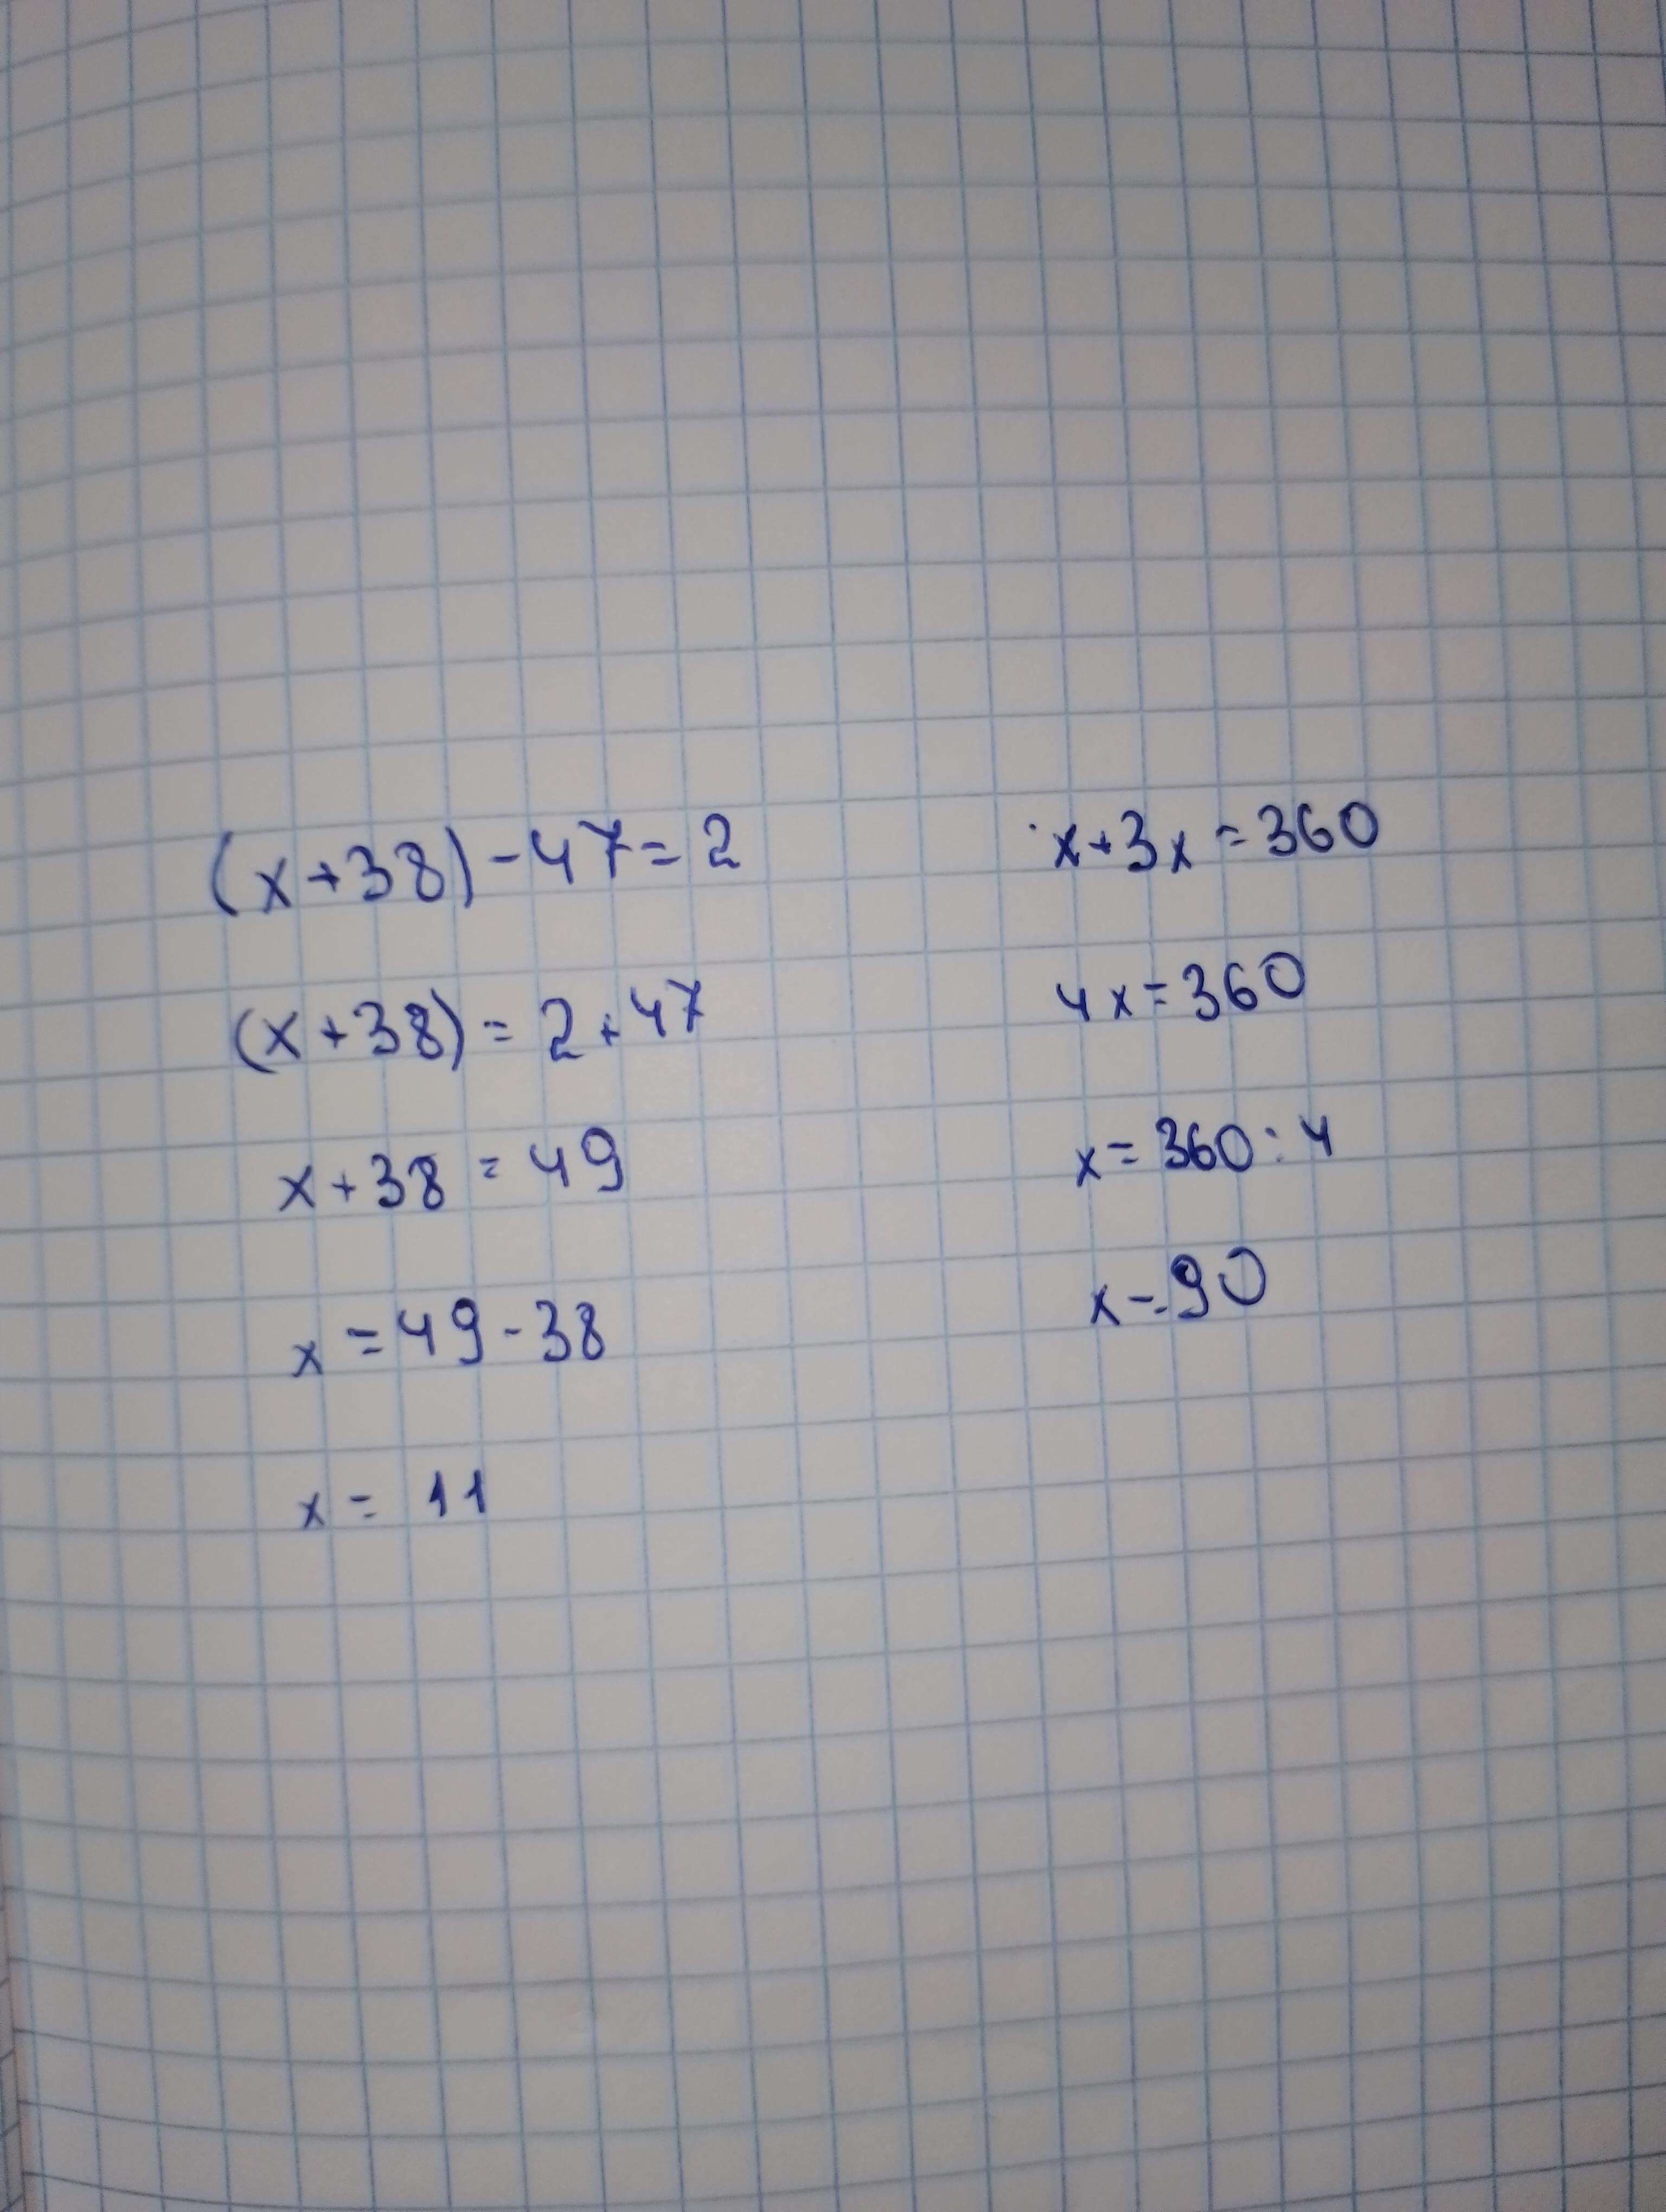 (x+38)-47=2
(x+38)=2+47
x+38=49
x=49-38
x=11
x+3x=360
4x=360
x=360:4
x=90